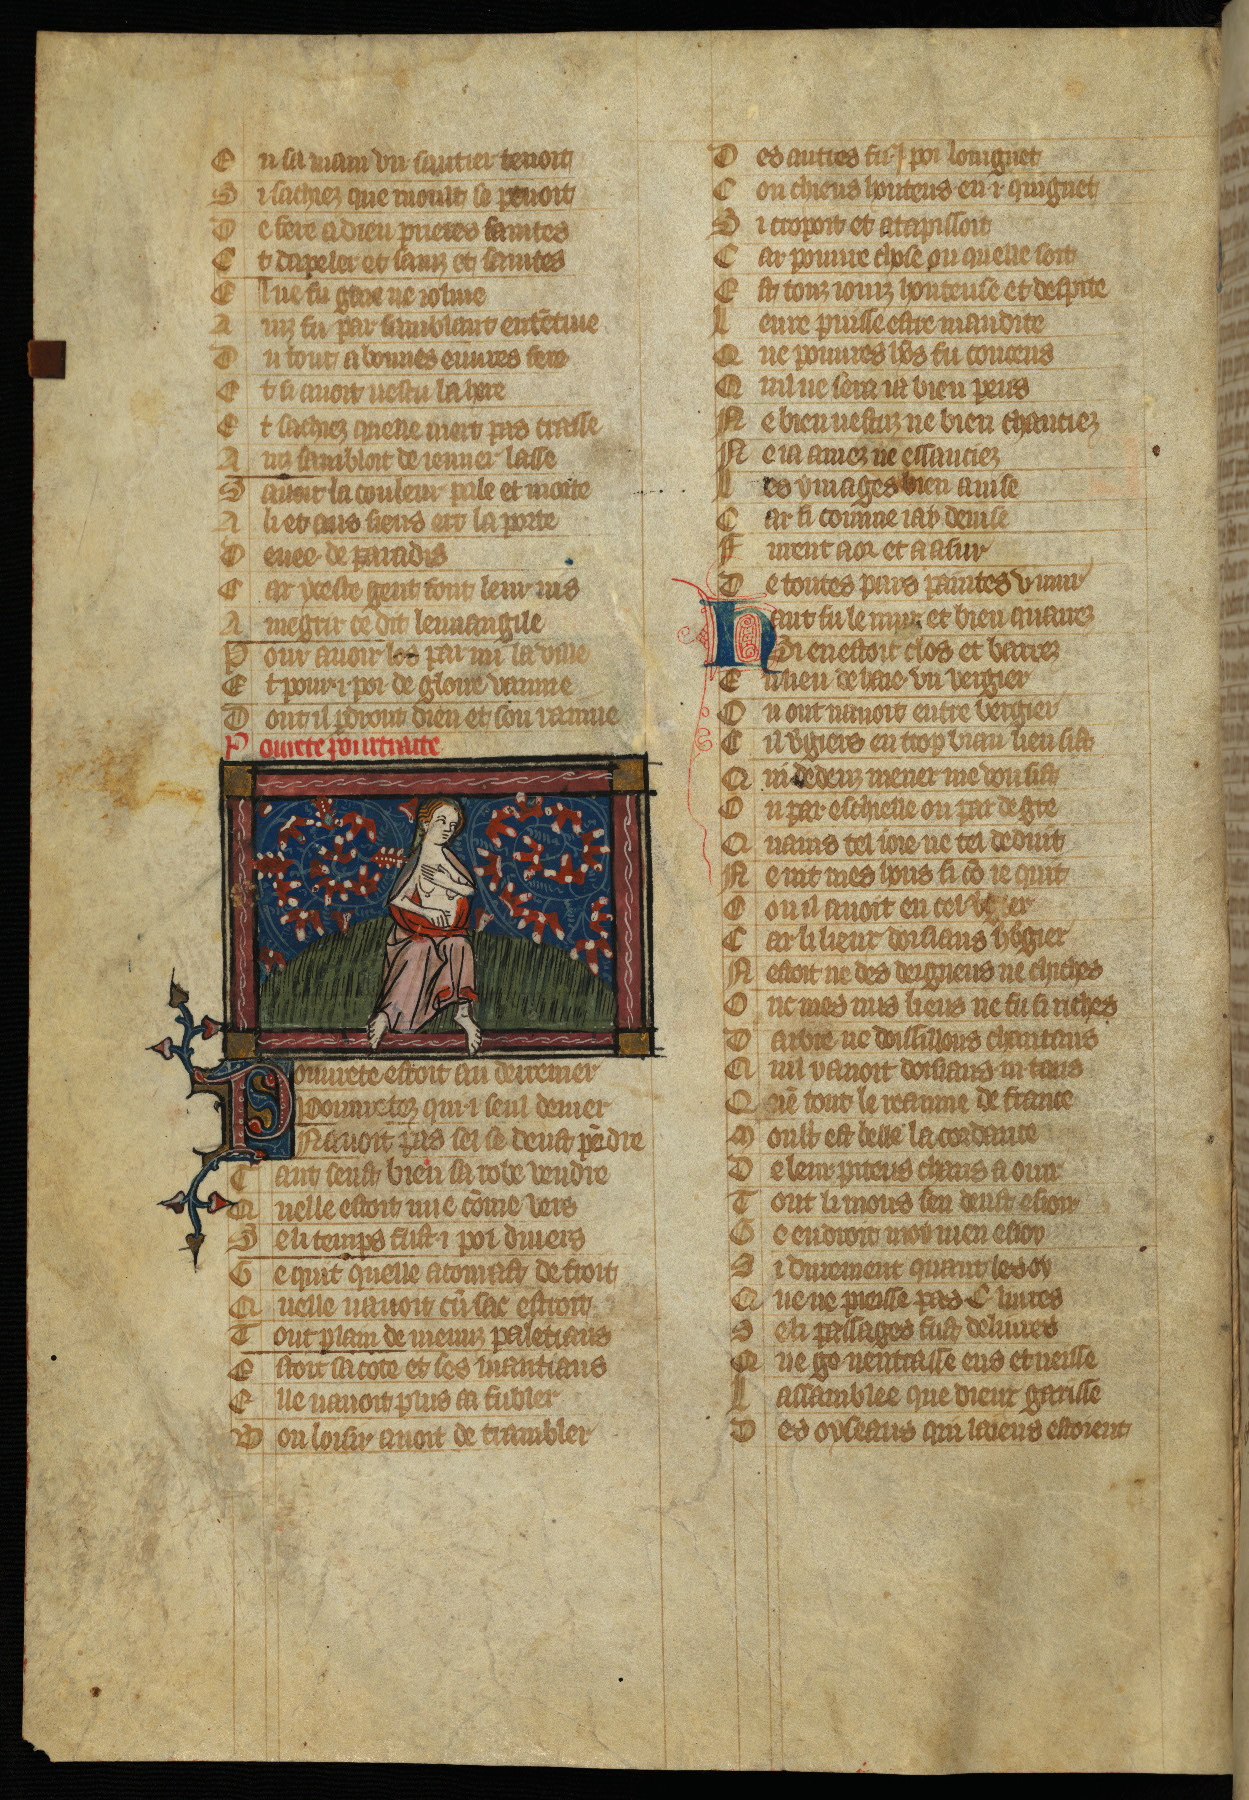 E n sa main un sautier tenoit
S i sachiez que moult se penoit
D e fere a dieu prieres faintes
E t dapeler et sainz et saintes
E l ne fu gaie ne iolive
A inz fu par samblant ententive
D u tout a bonnes euvres fere
E t si avoit vestu la here
E t sachiez quelle niert pas crasse
A inz sambloit de ieuner lasse
S avoit la couleur pale et morte
A li et aus siens ert la porte
D evee de paradis
C ar yceste gent font leur vis
A megrir ce dit leuvangile
P our avoir los par mi la ville
E t pour .i. poi de gloire vainne
D ont il perdront dieu et son rainne
P ovrete pourtraite
Pouvrete estoit au derrenier
Pouvretez qui .i. seul denier
Navoit pas sel se deust pendre
T ant seust bien sa robe vendre
Q uelle estoit nue comme vers
S e li temps fust .i. poi divers
G e quit quelle acorast de froit
Q uelle navoit cun sac estroit
T out plain de menuz paletiaus
E stoit sa cote et ses mantiaus
E lle navoit plus a afubler
B on loisir avoit de trambler
D es autres fu .i. poi longuet
C on chiens honteus en .i. quignet
S i cropoit et atapissoit
C ar pouvre chose ou quelle soit
E st touz iourz honteuse et despite
L eure puisse estre maudite
Q ue pouvres hons fu conceus
Q uil ne sera ia bien peus
N e bien vestuz ne bien chauciez
N e ia amez ne essauciez
L es ymages bien avise
C ar si comme iai devise
F urent a or et a asur
D e toutes pars paintes u mur
Haut fu le mur et bien quarrez
Si en estoit clos et barrez
E n lieu de haie un vergier
O u ont navoit entre bergier
C il vergiers en trop biau lieu sist
Q ui dedenz mener me vousist
O u par eschielle ou par degre
Q uains tel ioie ne tel deduit
N e vit mes hons si com ie quit
C ou il avoit en cel vergier
C ar li lieur doisiaus hbergier
N estoit ne des deigneus ne chiches
O nc mes nus lieus ne fu si riches
D arbre ne doisillons chantans
Q uil y avoit doisiaus .iii. tans
Q uen tout le reaume de france
M oult est belle la cordance
D e leur piteus chans a ouir
T out li mons sen deust esioir
G e endroit moy men esioy
S i durement quant les oy
Q ue ne preisse pas C livres
S e li passages fust delivres
Q ue ge nentrasse ens et veisse
L assamblee que dieur garisse
D es oyseaus qui laiens estoient